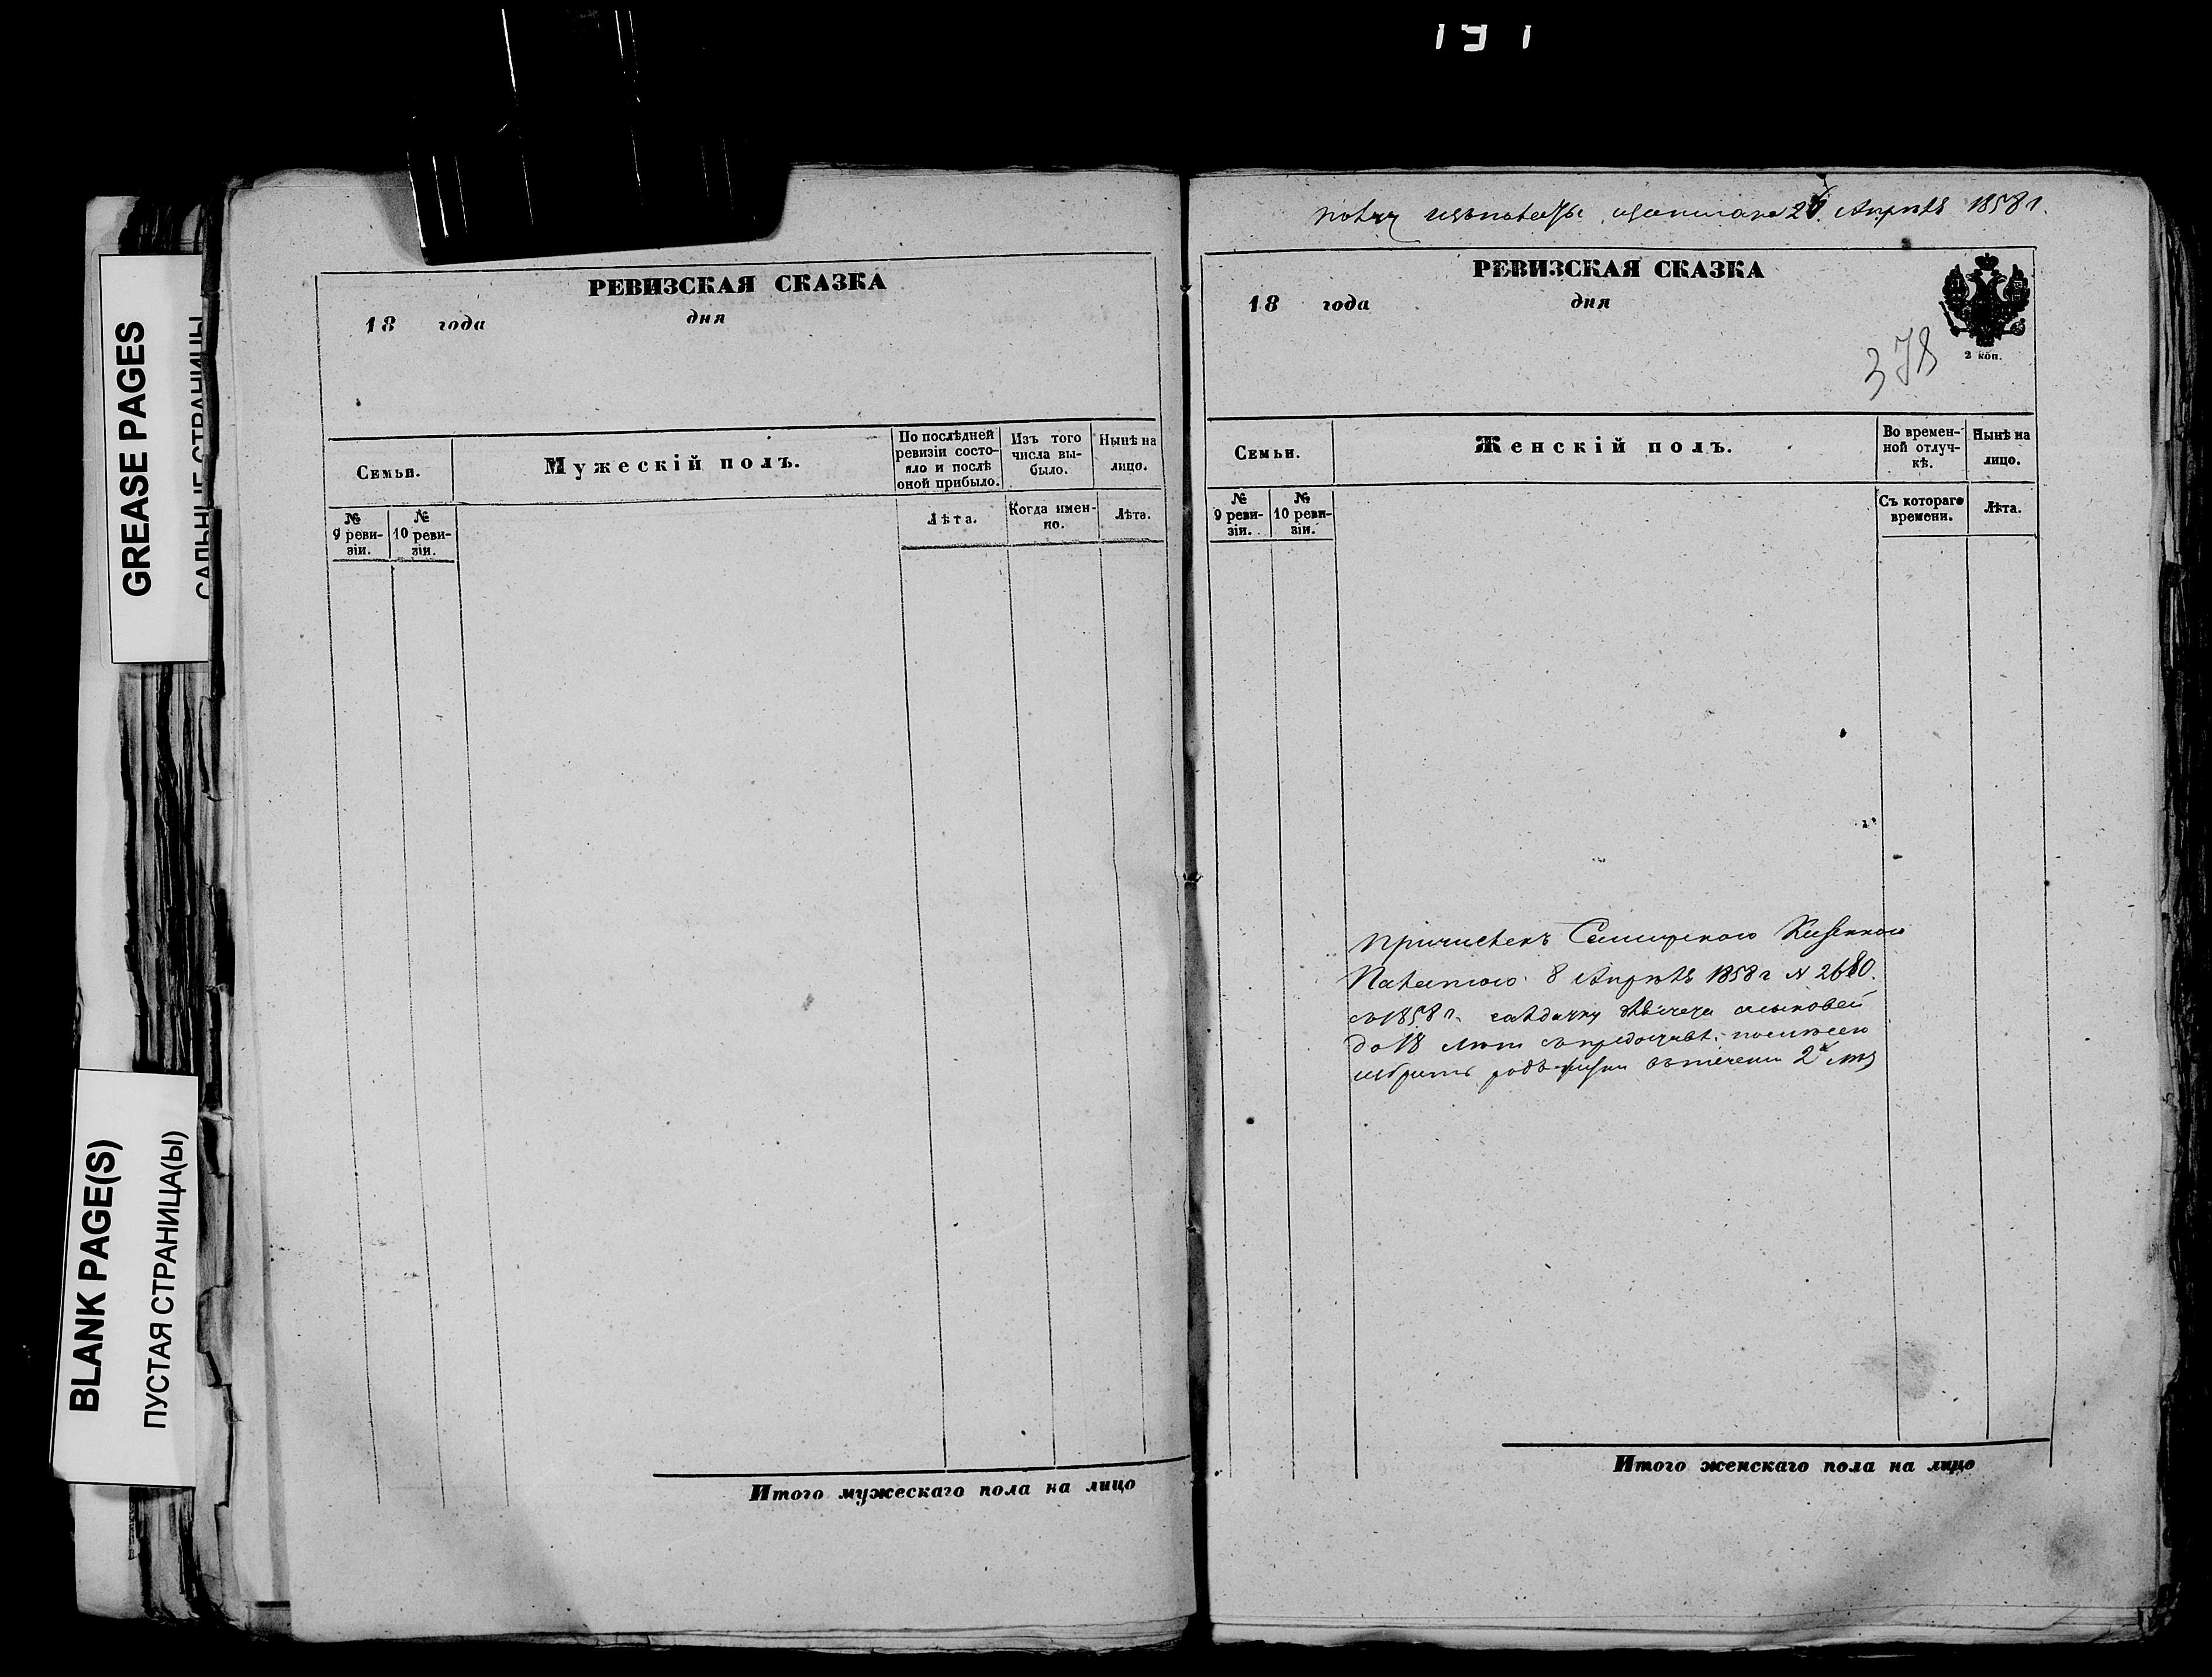 191
GREASE PAGES
САЛЬНЫЕ СТРАНИЦЫ
BLANK PAGE(S)
ПУСТАЯ СТРАНИЦА(Ы)
РЕВИЗСКАЯ СКАЗКА
18 года дня
Семьи.
Мужескій полъ.
По послѣдней ревизіи состояло и послѣ оной прибыло.
Изъ того числа выбыло.
Нынѣ на лицо.
№ 9 ревизіи.
№ 10 ревизіи.
Лѣта.
Когда именно.
Лѣта.
Итого мужескаго пола на лицо
Апрѣля 1858 г.
РЕВИЗСКАЯ СКАЗКА
18 года дня
2 коп.
378
Семьи.
Женскій полъ.
Во временной отлучкѣ.
Нынѣ на лицо.
№ 9 ревизіи.
№ 10 ревизіи.
Съ котораго времени.
Лѣта.
Причисленъ Казенною
Палатою 8 Апрѣля 1858 г N 2680
съ 1858 г.
до 18 лѣтъ
родъ жизни въ теченіи 2х
Итого женскаго пола на лицо